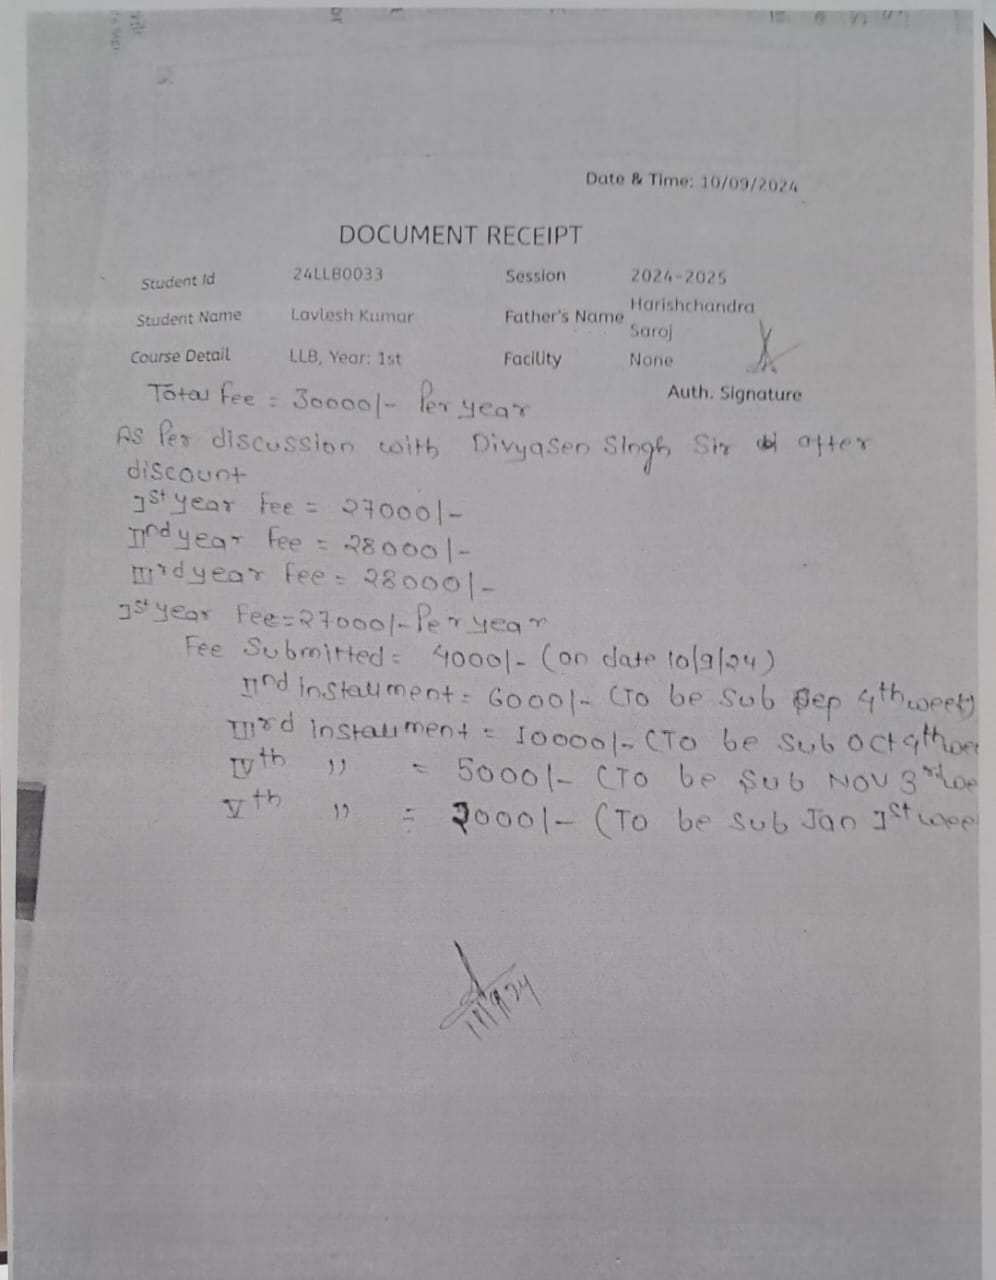 Date & Time: 10/09/2024
DOCUMENT RECEIPT
Student Id 24LLB0033 Session 2024-2025
Student Name Lavlesh Kumar Father's Name Harishchandra Saroj
Course Detail LLB, Year: 1st Facility None
Auth. Signature
Total fee = 30000/- Per year
As Per discussion with Divyasen Singh Sir after
discount
Ist year fee = 27000/-
IInd year fee = 28000/-
IIIrd year fee = 28000/-
Ist year Fee=27000/- Per year
Fee Submitted = 4000/- (on date 10/9/24)
IInd installment = 6000/- (To be sub Sep 4th week)
IIIrd installment = 10000/- (To be sub Oct 4th wee
IVth " = 5000/- (To be sub Nov 3rd we
Vth " = 2000/- (To be sub Jan Ist wee